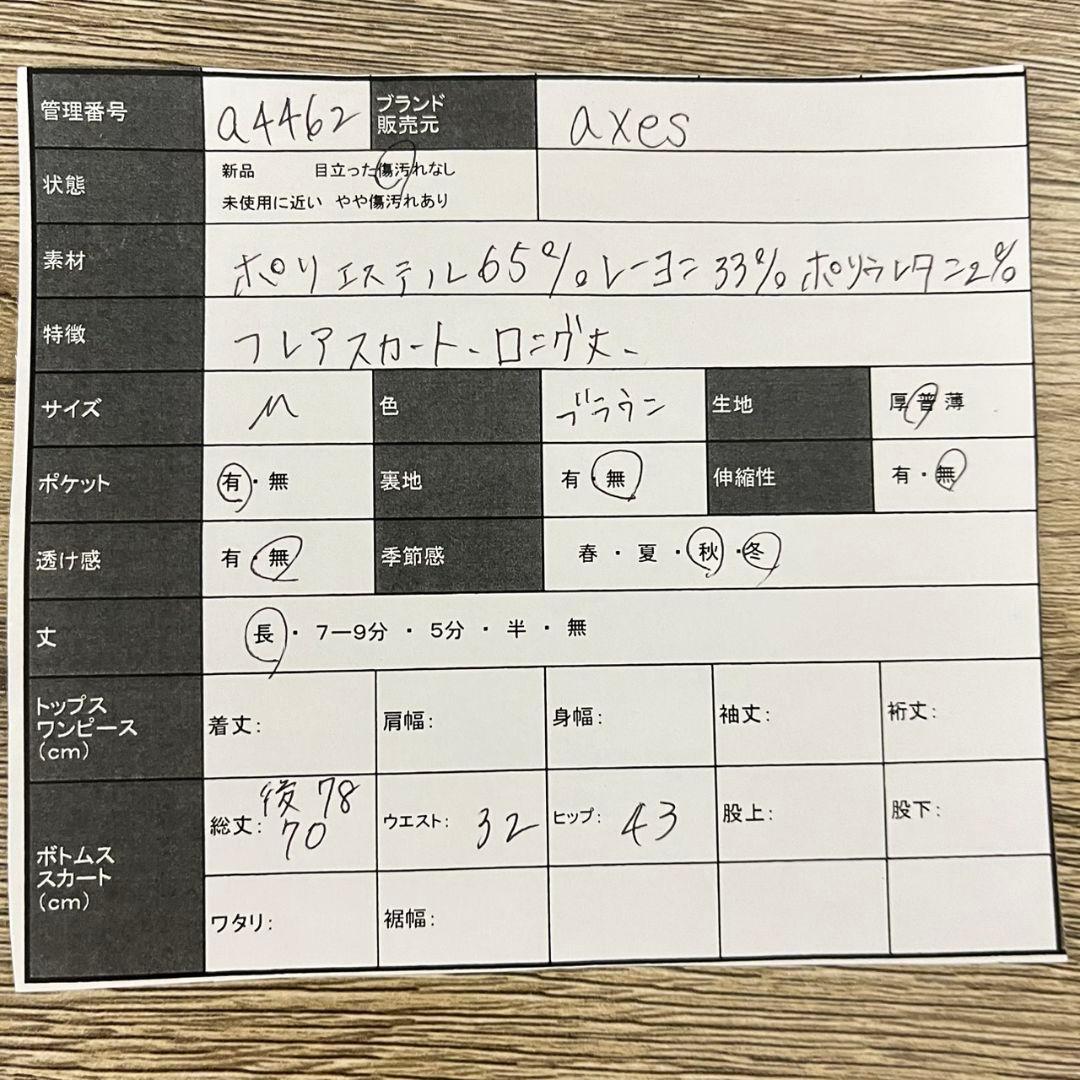 管理番号 a4462 ブランド 販売元 axes
状態 新品 目立った傷汚れなし
未使用に近い やや傷汚れあり
素材 ポリエステル65% レーヨン33% ポリウレタン2%
特徴 フレアスカート、ロング丈、
サイズ M 色 ブラウン 生地 厚 普 薄
ポケット 有・無 裏地 有・無 伸縮性 有・無
透け感 有・無 季節感 春・夏・秋・冬
丈 長・7ー9分・5分・半・無
トップス
ワンピース
(cm)
着丈: 肩幅: 身幅: 袖丈: 裄丈:
ボトムス
スカート
(cm)
後 78
総丈: 70 ウエスト: 32 ヒップ: 43 股上: 股下:
ワタリ: 裾幅: